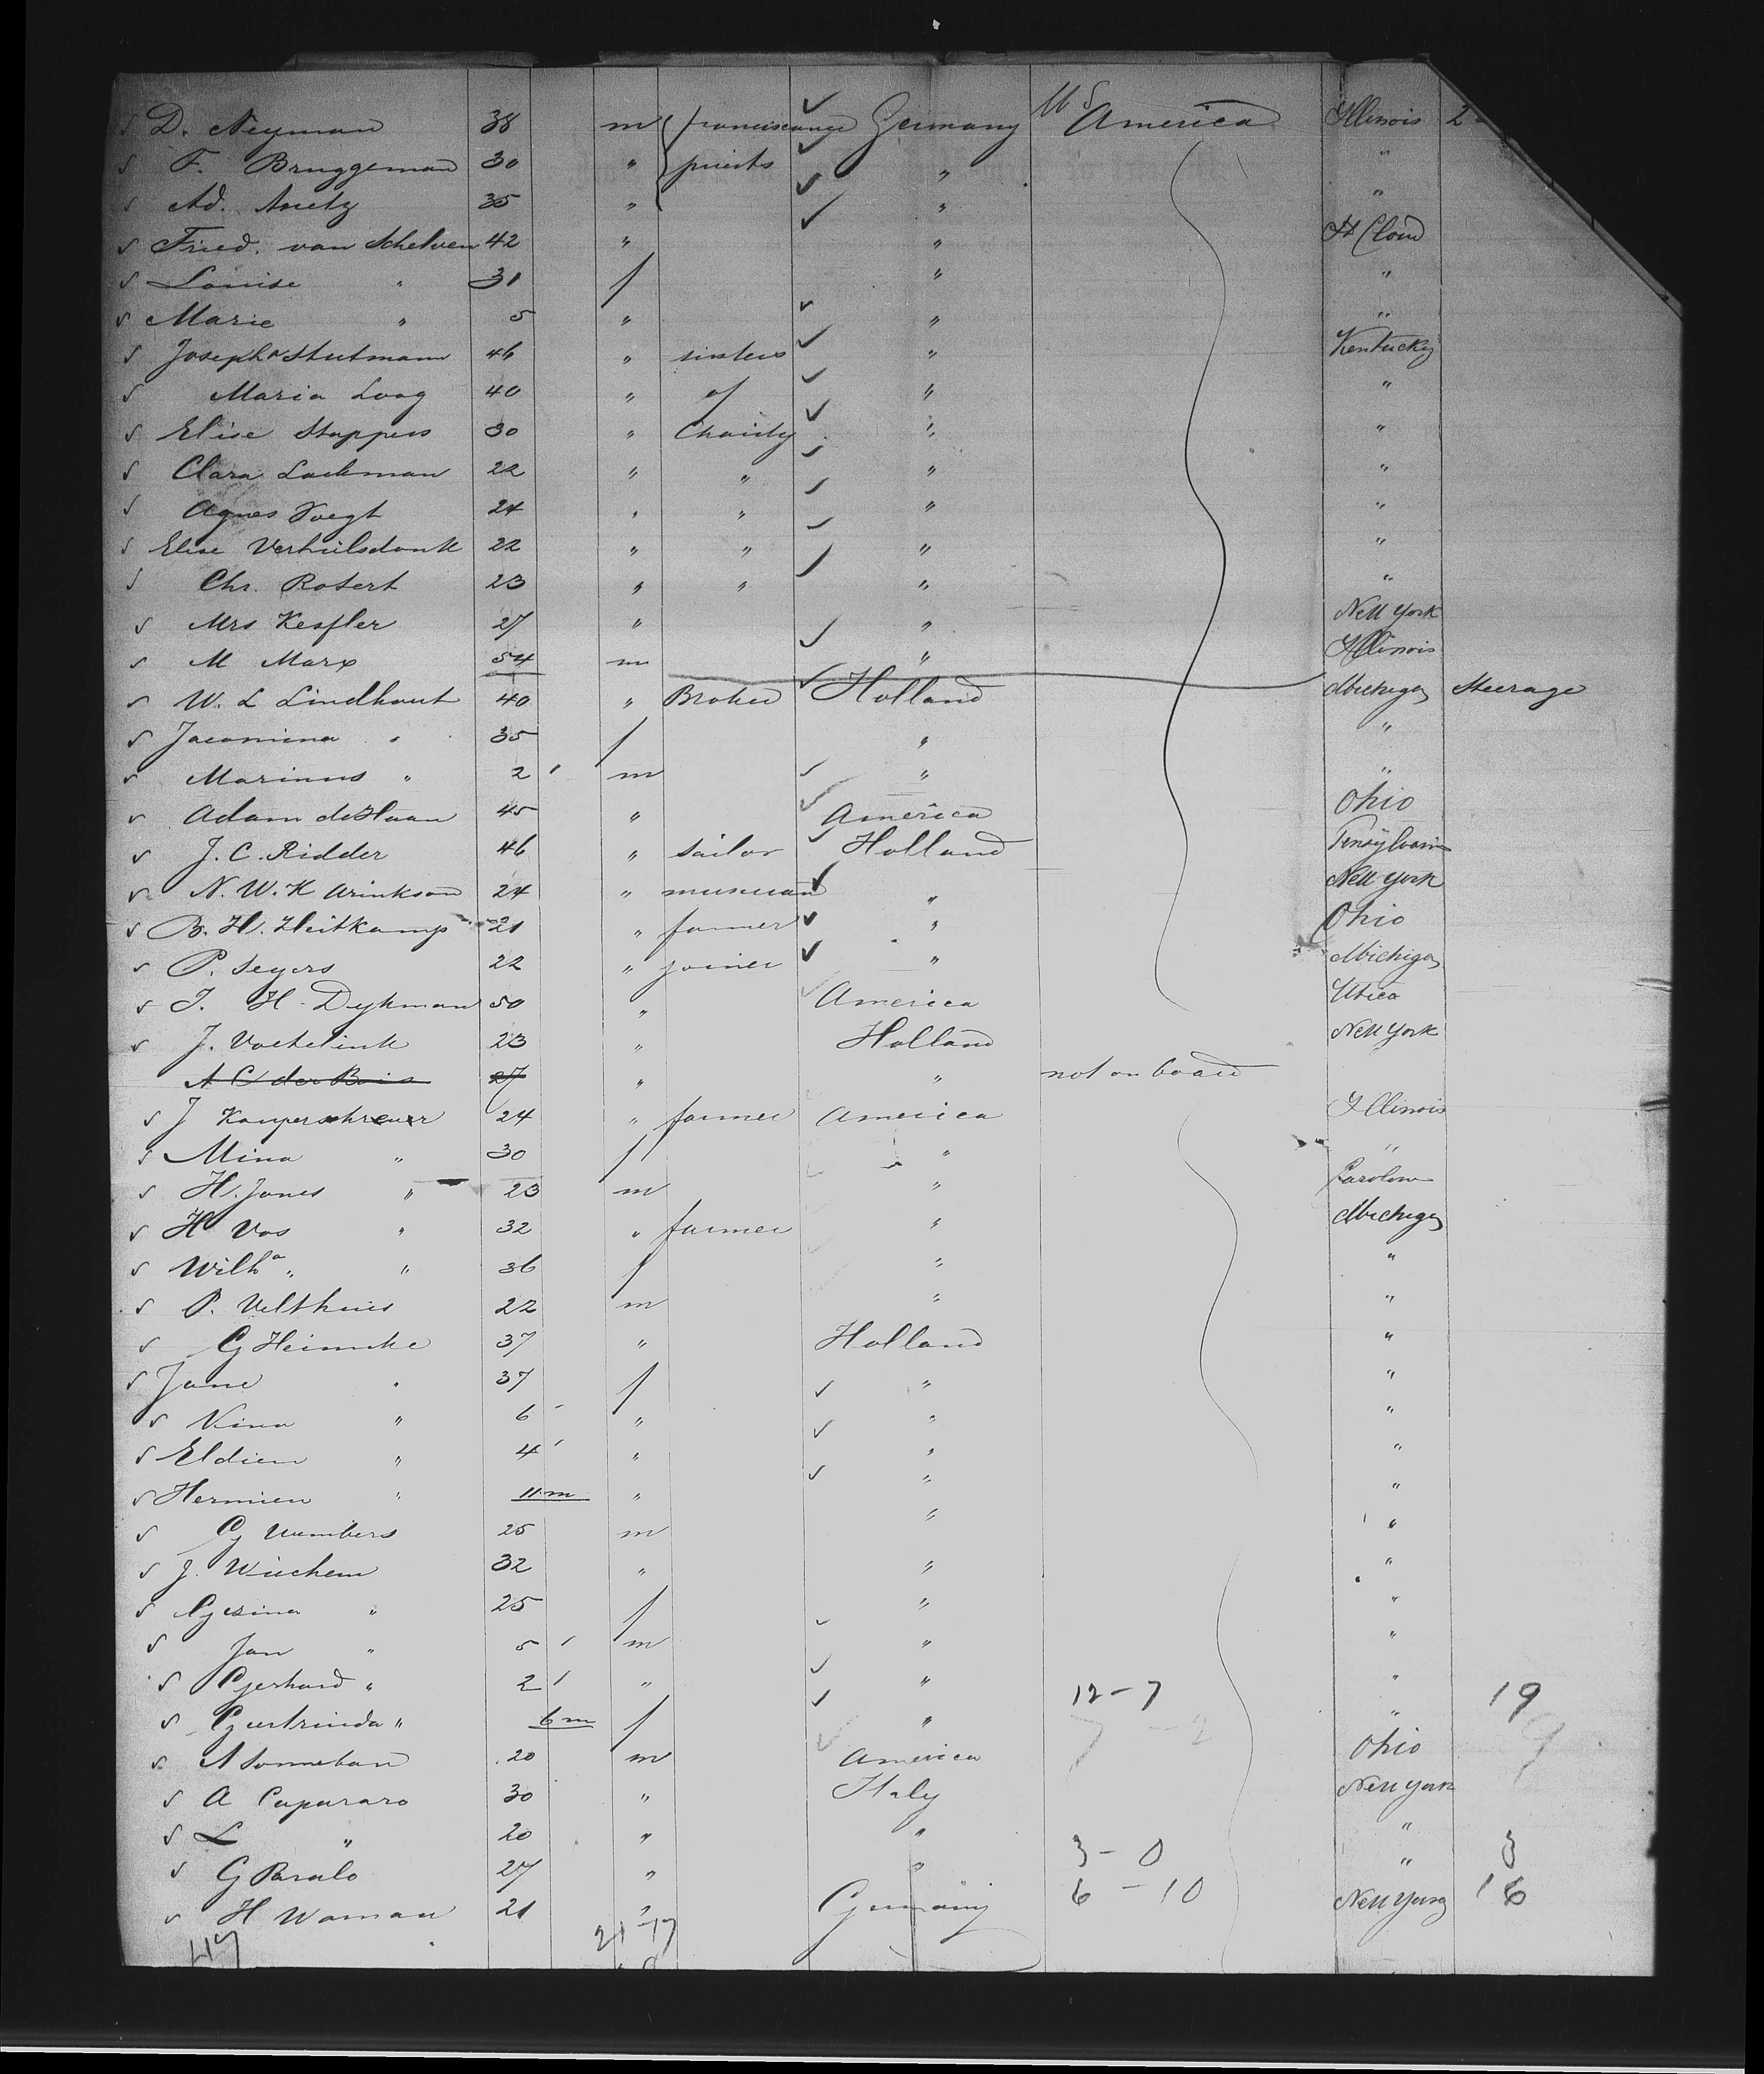 D. Neyman 38 m franciscaner Germany U S America Illinois 2
F. Bruggeman 30 " priests " "
Ad. 35 " " "
Fried. van Schelven 42 " " St Cloud
Louise " 31 f " "
Marie " 5 " " "
Josepha Stutmann 46 " sisters " Kentucky
Maria Loog 40 " of " "
Elise Stappers 30 " Charity " "
Clara Lackman 22 " " " "
Agnes Voegt 24 " " " "
Elise Verhülsdonk 22 " " " "
Chr. Rotert 23 " " " "
Mrs Kessler 27 " " New York
M Marx 54 m " Illinois
W. L Lindhout 40 " Broker Holland Michigan Steerage
Jacomina " 35 f " "
Marinus " 2 m " "
Adam de Haan 45 " America Ohio
J. C. Ridder 46 " sailor Holland Pensylvain
N. W. K 24 " musician " New York
B. H. Heitkamp 21 " farmer " Ohio
P. Seyers 22 " joiner " Michigan
J. H. Dykman 50 " America Utica
J. 23 " Holland New York
A C der Bois 27 " " not on board
J 24 " farmer America Illinois
Mina " 30 f " "
H. Jones " 23 m " Carolina
H Vos " 32 " farmer " Michigan
Wilha " " 36 f " "
P. Velthuis 22 m " "
G 37 " Holland "
Jane " 37 f " "
" 6 " " "
Eldien " 4 " " "
Hermien " 11 m " " "
G 25 m " "
J. Wiechem 32 " " "
Gesina " 25 f " "
Jan " 5 m " "
Gerhard " 2 " " " 12 - 7 19
" 6 m f " "
A 20 m America Ohio
A Capararo 30 " Italy New York
L " 20 " " "
G 27 " " 3 - 0 " 3
H Waman 21 " Germany 6 - 10 New York 16
47 21 17